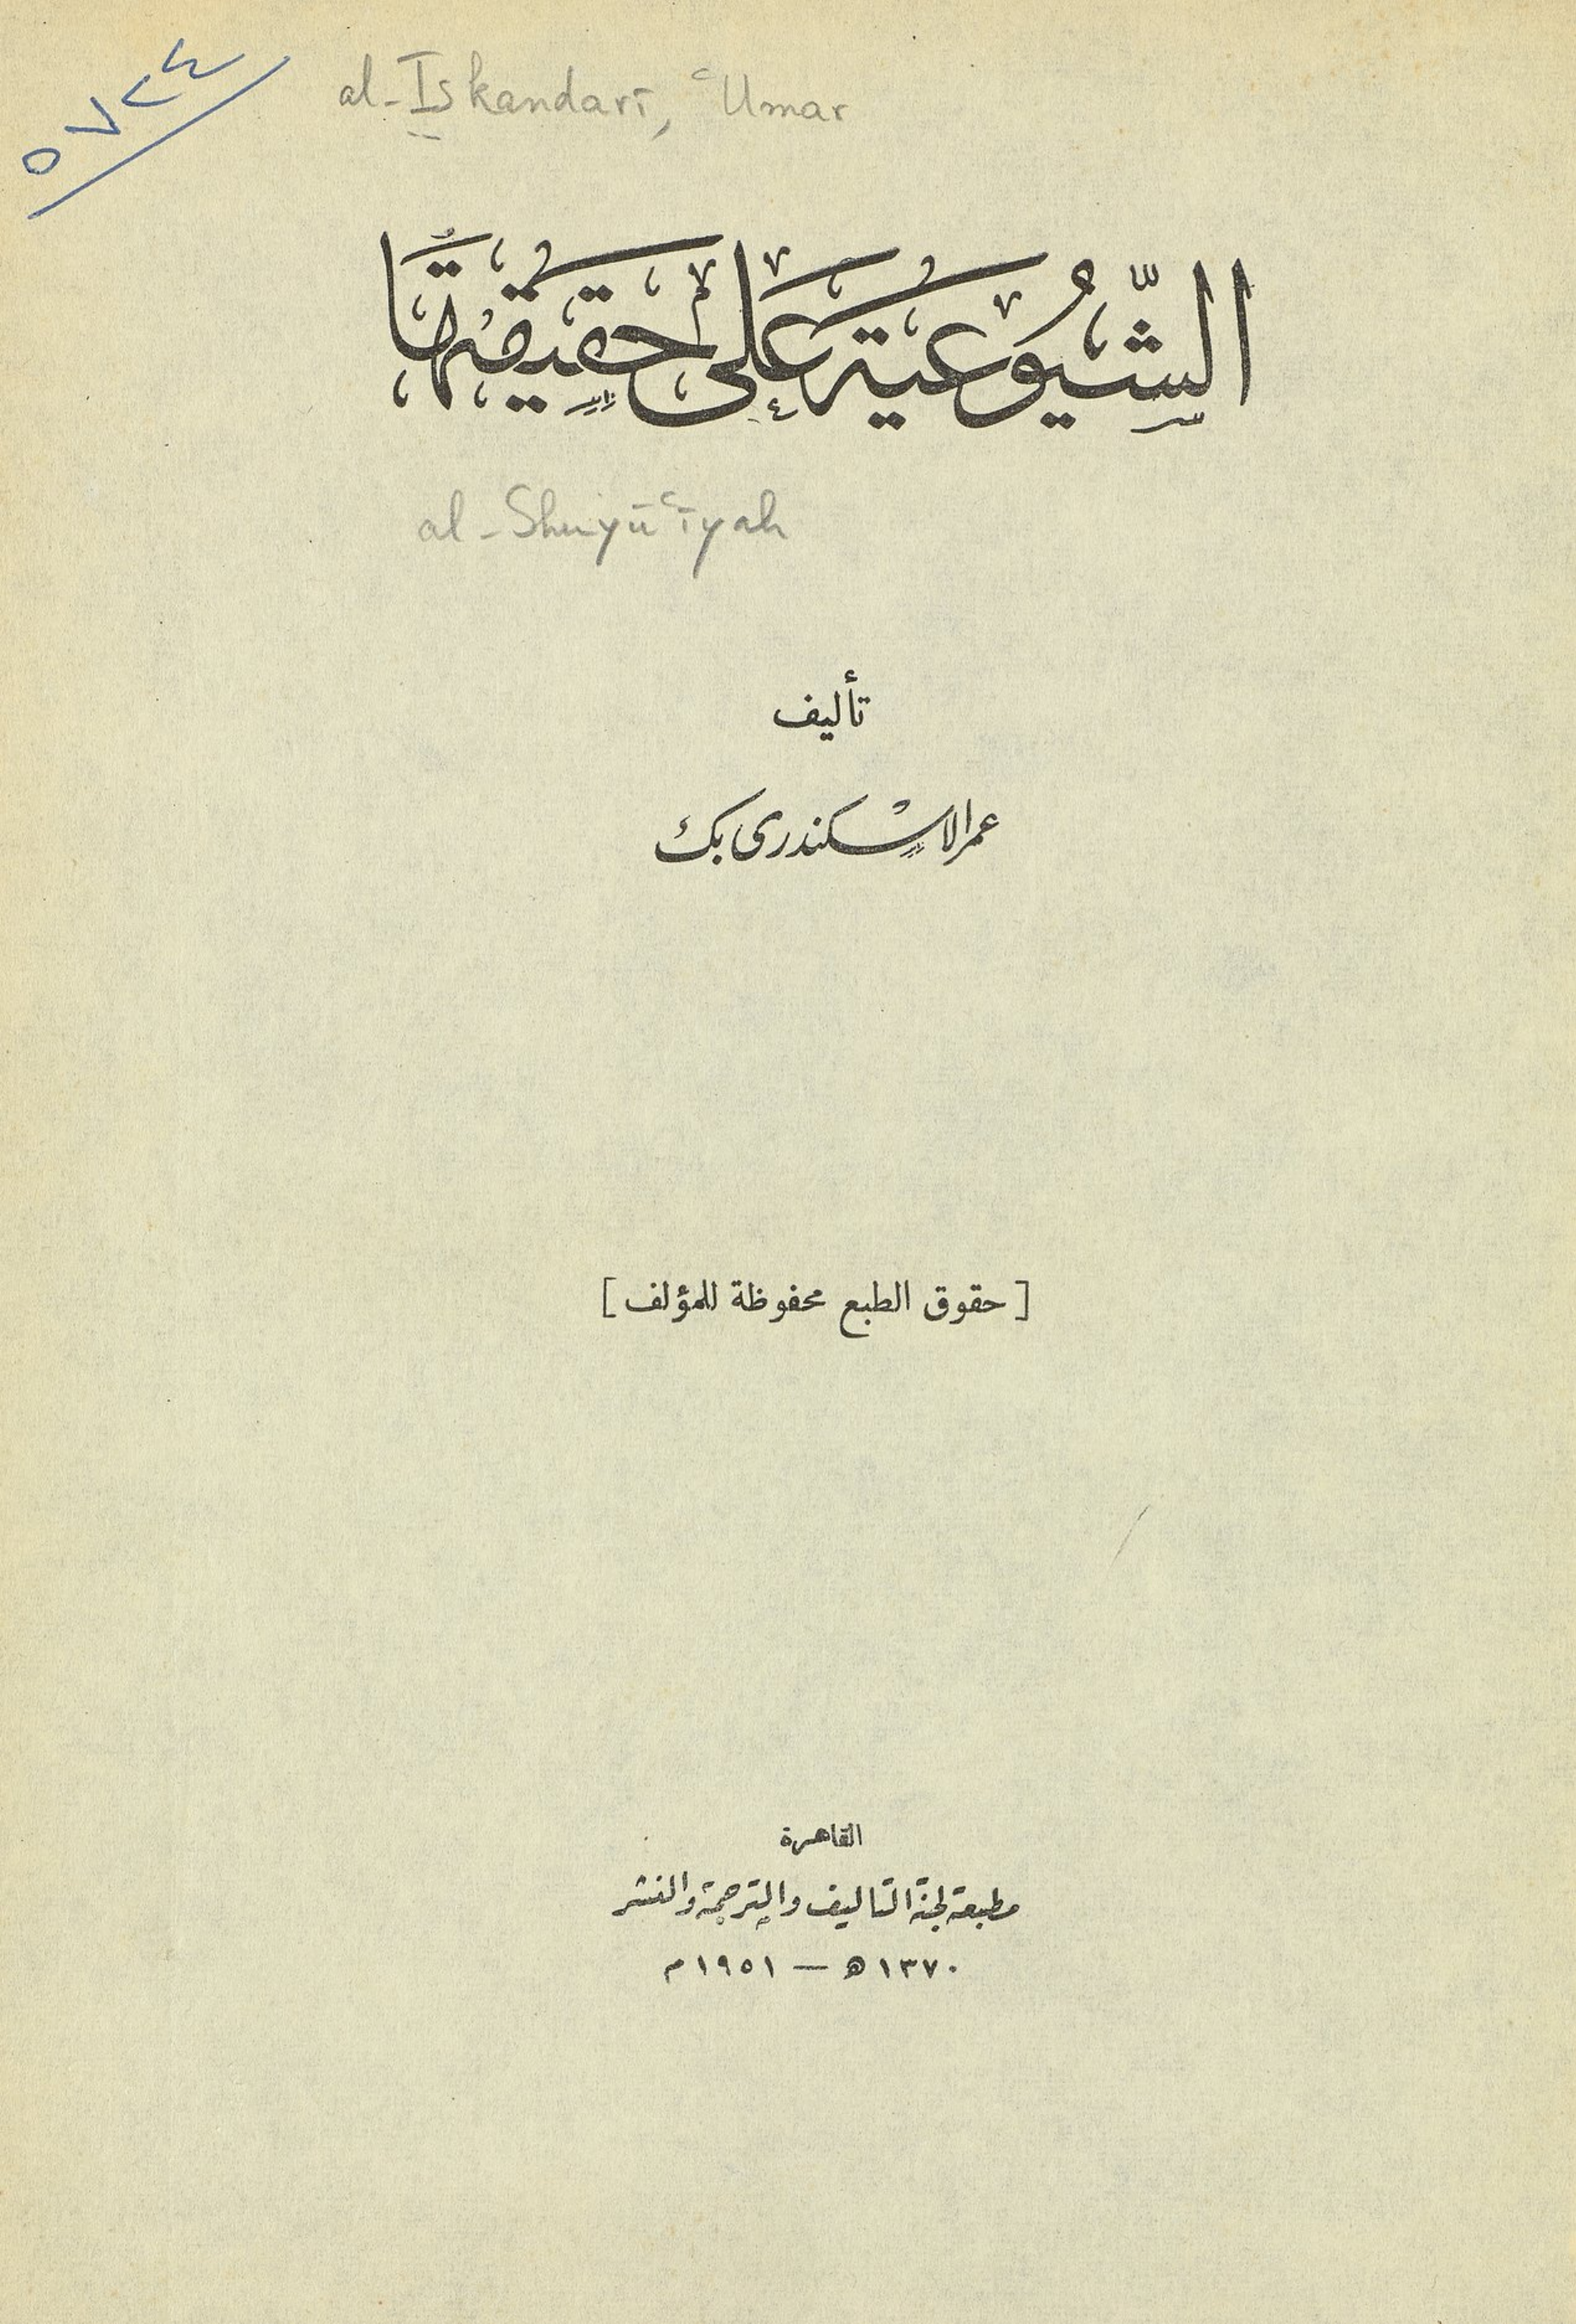 ٥٧٢٤
al-Iskandarī, ʿUmar
الشيوعية على حقيقتها
al-Shuyūʿīyah
تأليف
عمر الاسكندرى بك
[ حقوق الطبع محفوظة للمؤلف ]
القاهرة
مطبعة لجنة التاليف والترجمة والنشر
١٣٧٠ ھ — ١٩٥١ م